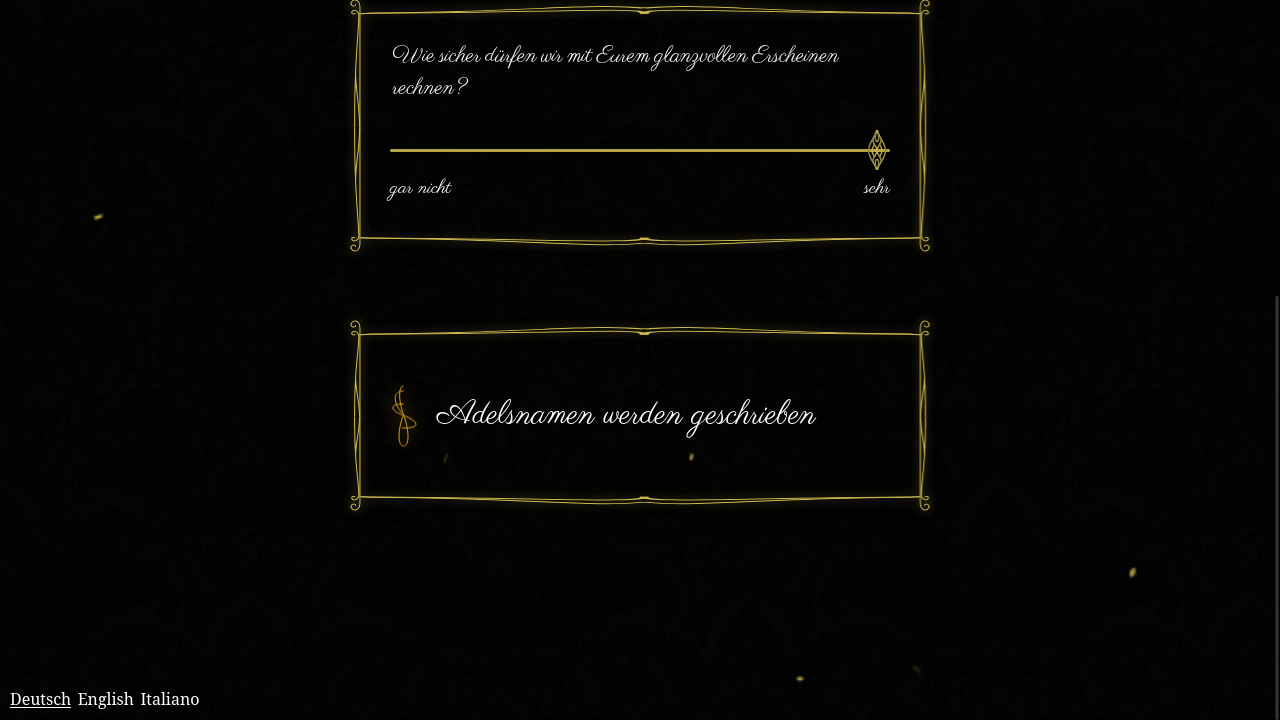 Wie sicher dürfen wir mit Eurem glanzvollen Erscheinen
rechnen?
gar nicht
sehr
Adelsnamen werden geschrieben
Deutsch English Italiano